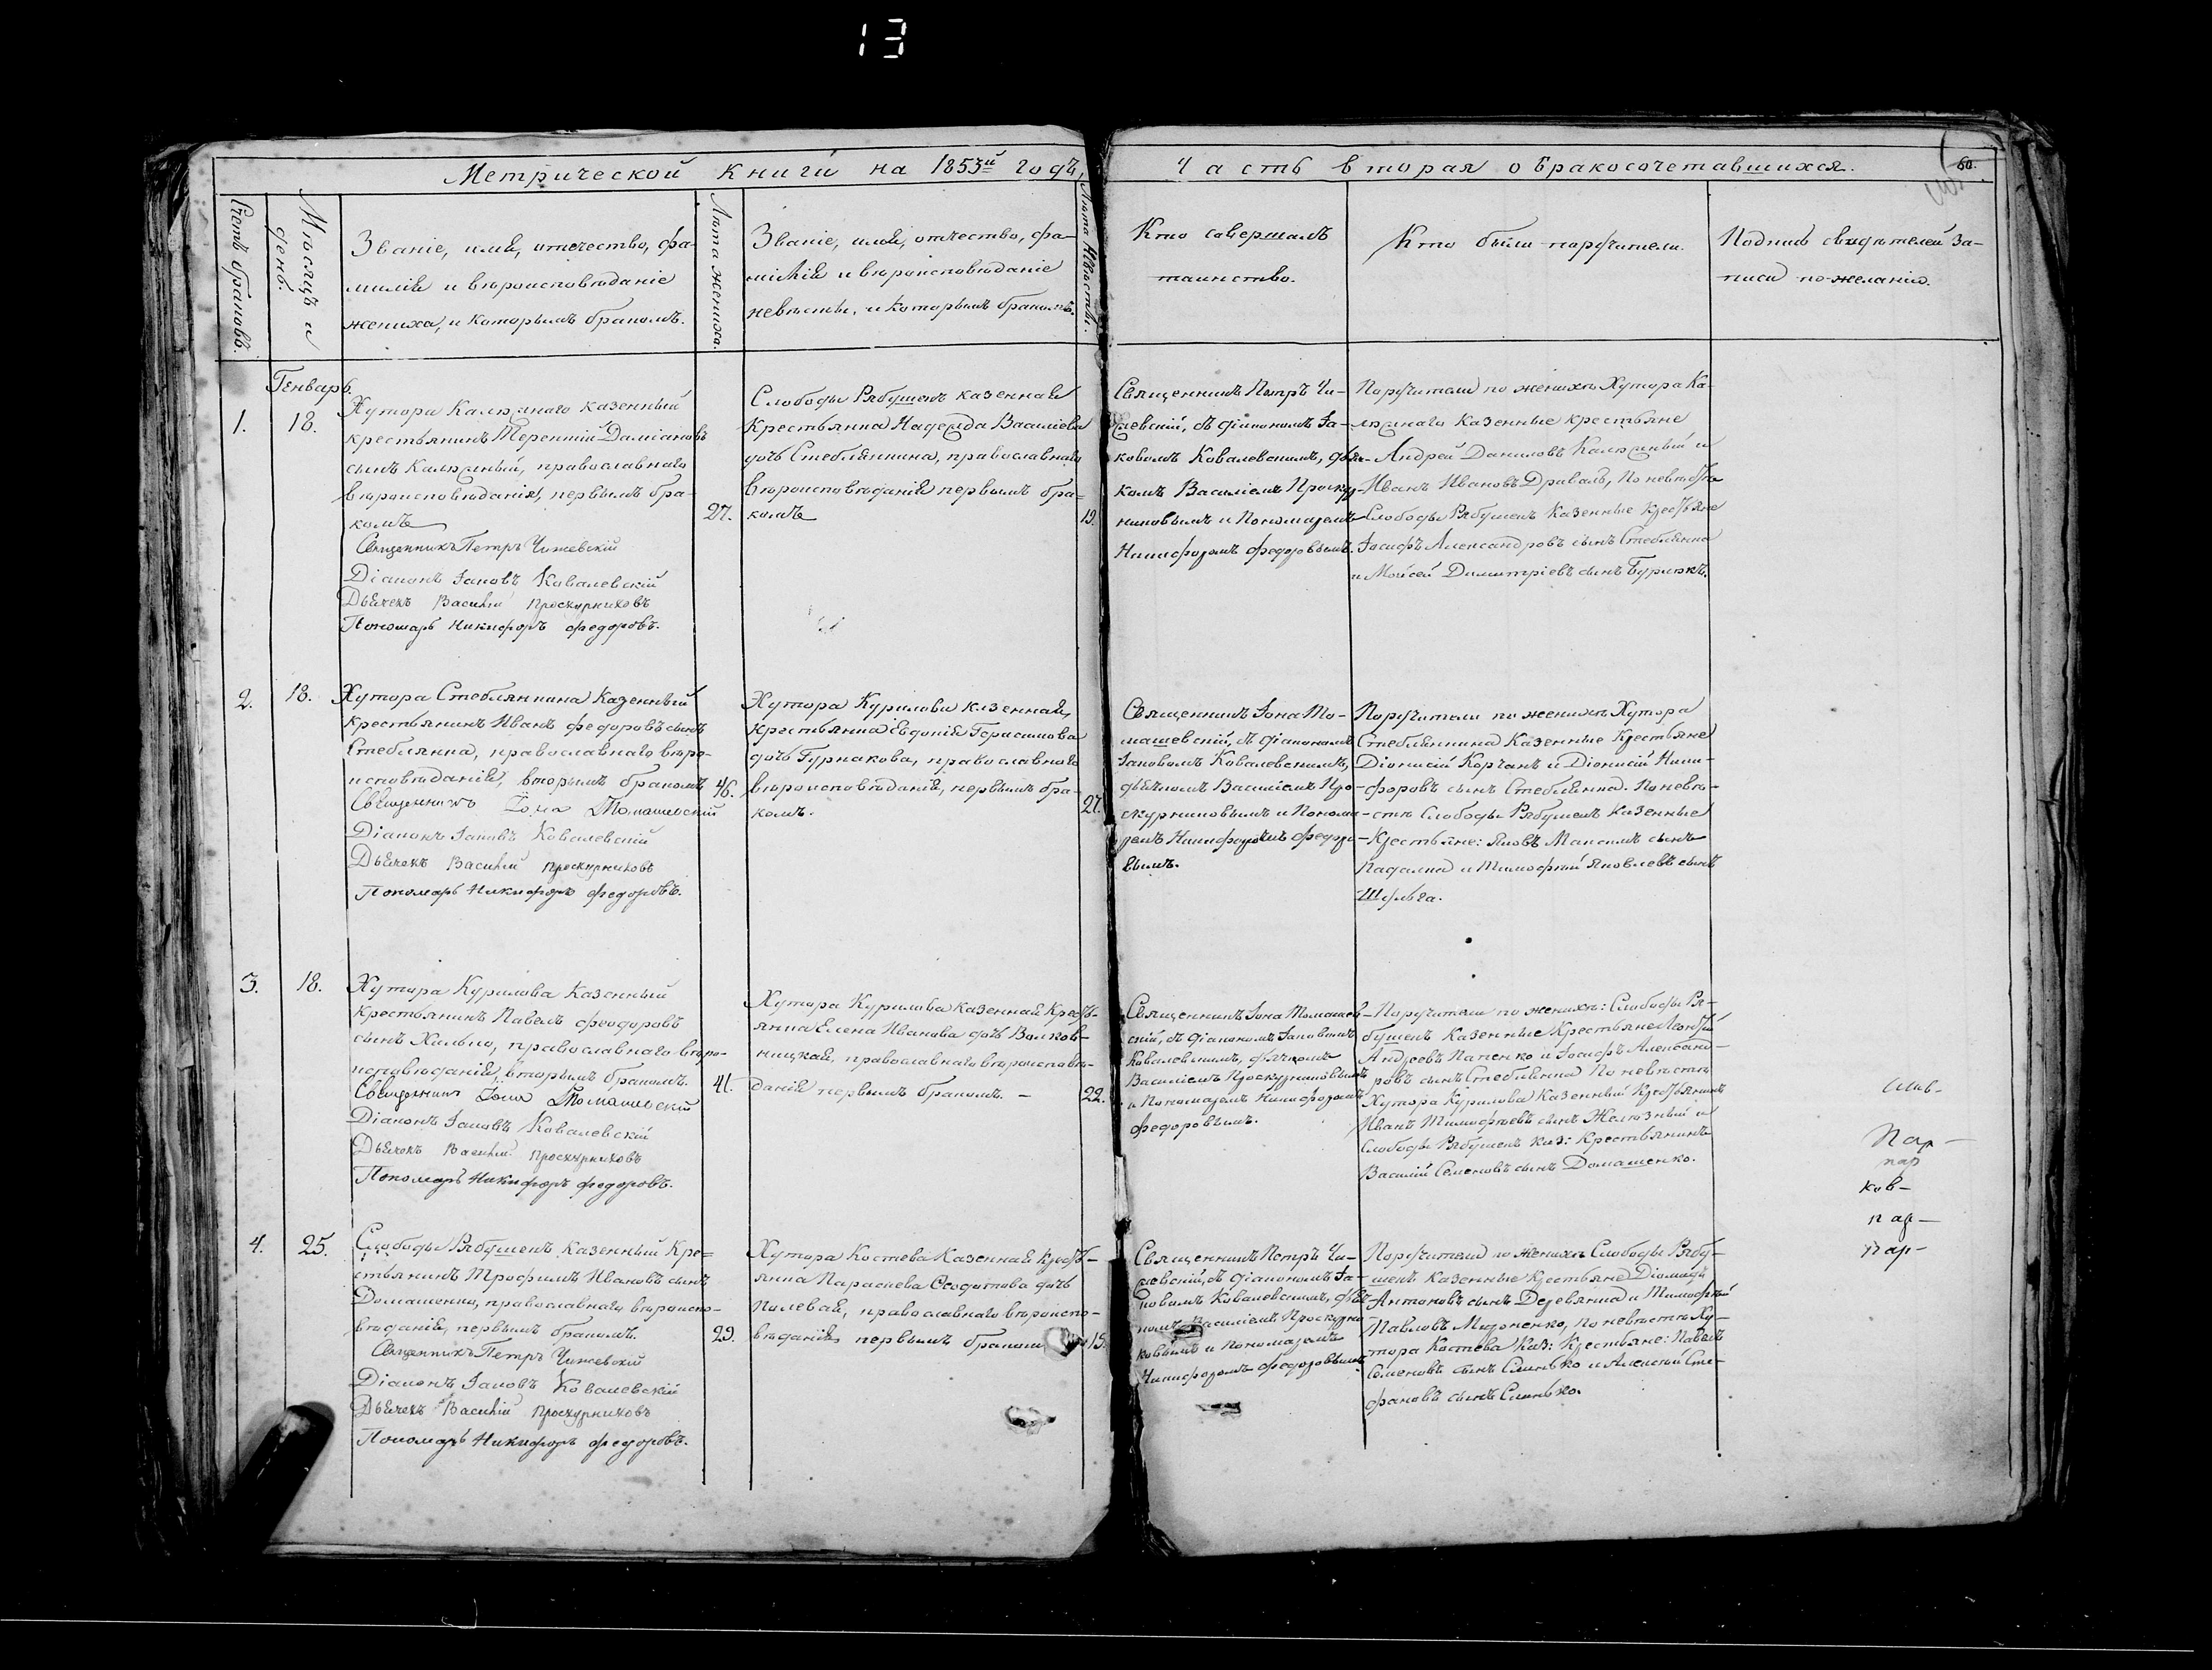 13
Метрической книги на 1853й годъ,
Часть вторая о бракосочетавшихся.
60.
Счетъ браковъ.
Мѣсяцъ и
день.
Званіе, имя, отечество, фа-
милія и вѣроисповѣданіе
жениха, и которымъ бракомъ.
Лѣта жениха.
Званіе, имя, отечество, фа-
милія и вѣроисповѣданіе
невѣсты, и которымъ бракомъ.
Лѣта невѣсты.
Кто совершалъ
таинство.
Кто были поручители.
Подпись свидѣтелей за-
писи по желанію.
Генварь.
1.
18.
Хутора Калюжнаго казенный
крестьянинъ Терентій Даміановъ
сынъ Калюжный, православнаго
вѣроисповѣданія, первымъ бра-
комъ
27.
Священникъ Петръ Чижевскій
Діаконъ Іаковъ Ковалевскій
Дьячекъ Василій Проскурниковъ
Пономарь Никифоръ Федоровъ.
Слободы Рябушекъ казенная
крестьянка Надежда Васильева
дочь Стеблянкина, православнаго
вѣроисповѣданія первымъ бра=
комъ
19.
Священникъ Петръ Чи-
жевскій, съ діакономъ Іа-
ковомъ Ковалевскимъ, дья-
комъ Василіемъ Проскур-
никовымъ и Пономаремъ
Никифоромъ Федоровымъ.
Поручители по женихѣ Хутора Ка-
люжнаго Казенные крестьяне
Андрей Даниловъ Калюжный и
Иванъ Ивановъ Дрваль, По невѣстѣ
Слободы Рябушекъ Казенные крестьяне
Іосифъ Александровъ сынъ Стеблянка
и Моисей Димитріевъ сынъ Бурикъ.
2.
18.
Хутора Стеблянкина Казенный
крестьянинъ Иванъ Федоровъ сынъ
Стеблянка, православнаго вѣро-
исповѣданія, вторымъ бракомъ
46.
Священникъ Іона Томашевскій
Діаконъ Іаковъ Ковалевскій
Дьячекъ Василій Проскурниковъ
Пономарь Никифоръ Федоровъ.
Хутора Курилова казенная
крестьянка Евдокія Герасимова
дочь Гурнакова, православнаго
вѣроисповѣданія, первымъ бра-
комъ.
27.
Священникъ Іона То-
машевскій, съ діакономъ
Іаковомъ Ковалевскимъ,
дьячкомъ Василіемъ Про-
скурниковымъ и Понома-
ремъ Никифоромъ Федоро-
вымъ.
Поручители по женихѣ Хутора
Стеблянкина Казенные крестьяне
Діонисій Корчанъ и Діонисій Ники-
форовъ сынъ Стеблянка. По невѣ-
стѣ Слободы Рябушекъ казенные
Крестьяне: Яковъ Максимъ сынъ
Падалка и Тимофей Яковлевъ сынъ
Шульга.
3.
18.
Хутора Курилова Казенный
крестьянинъ Павелъ Феодоровъ
сынъ Хилько, православнаго вѣро-
исповѣданія, вторымъ бракомъ.
41.
Священникъ Іона Томашевскій
Діаконъ Іаковъ Ковалевскій
Дьячекъ Василій Проскурниковъ
Пономарь Никифоръ Федоровъ.
Хутора Курилова казенная Кресть-
янка Елена Иванова дочь Волков-
ницкая, православнаго вѣроисповѣ-
данія первымъ бракомъ. -
22.
Священникъ Іона Томашев-
скій, съ діакономъ Іаковомъ
Ковалевскимъ, дьячкомъ
Василіемъ Проскурниковымъ
и Пономаремъ Никифоромъ
Федоровымъ.
Поручители по женихѣ: Слободы Ря-
бушекъ казенные Крестьяне Леонтій
Андреевъ Папенко и Іосифъ Александ-
ровъ сынъ Стеблянка По невѣстѣ
Хутора Курилова Казенный Крестьянинъ
Иванъ Тимофѣевъ сынъ Желѣзный и
Слободы Рябушекъ каз: Крестьянинъ
Василій Семеновъ сынъ Домашенко.
Пар-
пар
ков-
пар-
пар-
4.
25.
Слободы Рябушекъ Казенный Кре=
стьянинъ Трофимъ Ивановъ сынъ
Домашенко, православнаго вѣроиспо-
вѣданія, первымъ бракомъ.
29.
Священникъ Петръ Чижевскій
Діаконъ Іаковъ Ковалевскій
Дьячекъ Василій Проскурниковъ
Пономарь Никифоръ Федоровъ.
Хутора Костева Казенная Кресть-
янка Параскева Феодотова дочь
Полевая, православнаго вѣроиспо-
вѣданія первымъ бракомъ
Священникъ Петръ Чи-
жевскій, съ діакономъ Іа-
ковомъ Ковалевскимъ, дьяч-
комъ Василіемъ Проскурни-
ковымъ и Пономаремъ
Никифоромъ Федоровымъ.
Поручители по женихѣ Слободы Рябу-
шекъ казенные Крестьяне Діомидъ
Антоновъ сынъ Деревянка и Тимофѣй
Павловъ Мироненко, по невѣстѣ Ху-
тора Костева Каз: Крестьяне: Павелъ
Семеновъ сынъ Слинько и Алексѣй Сте-
фановъ сынъ Слинько.